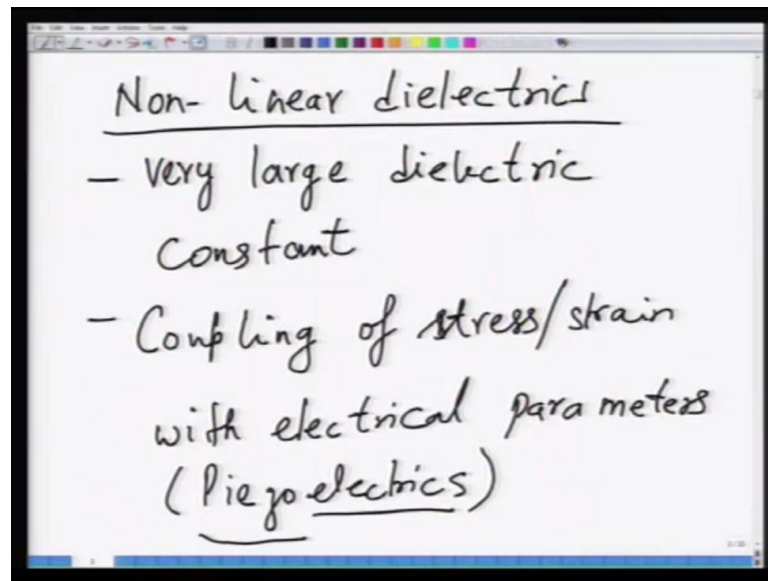 Non-linear dielectrics
- Very large dielectric
constant
- Coupling of stress/strain
with electrical parameters
(Piezoelectrics)